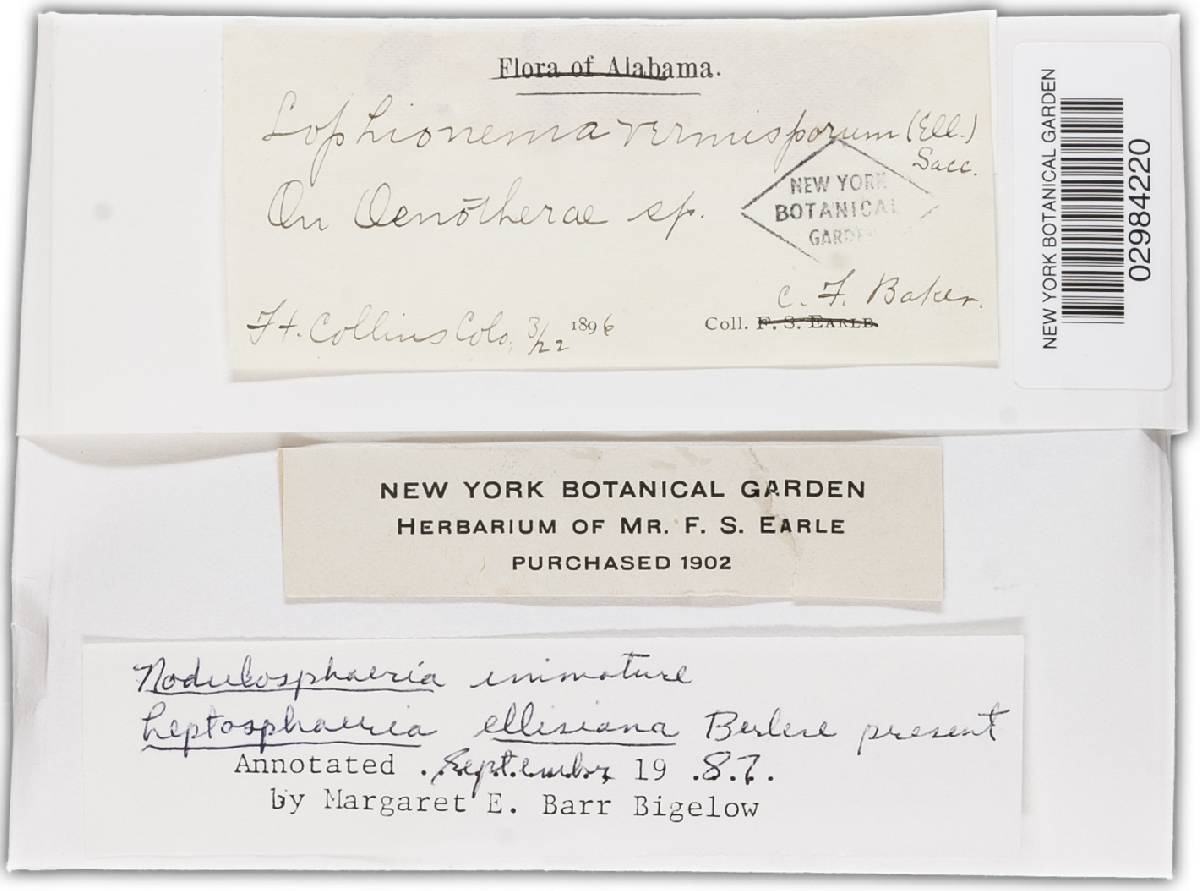 Flora of Alabama.
Lophionema vermisporum (Ell.)
Sacc.
On Oenotherae sp.
NEW YORK
BOTANICAL
GARDEN
Ft. Collins Colo, 3/22 1896
C. F. Baker.
Coll. F. S. EARLE.
NEW YORK BOTANICAL GARDEN
02984220
NEW YORK BOTANICAL GARDEN
HERBARIUM OF MR. F. S. EARLE
PURCHASED 1902
Nodulosphaeria immature
Leptosphaeria ellisiana Berlese present
Annotated . September 19 .87.
by Margaret E. Barr Bigelow